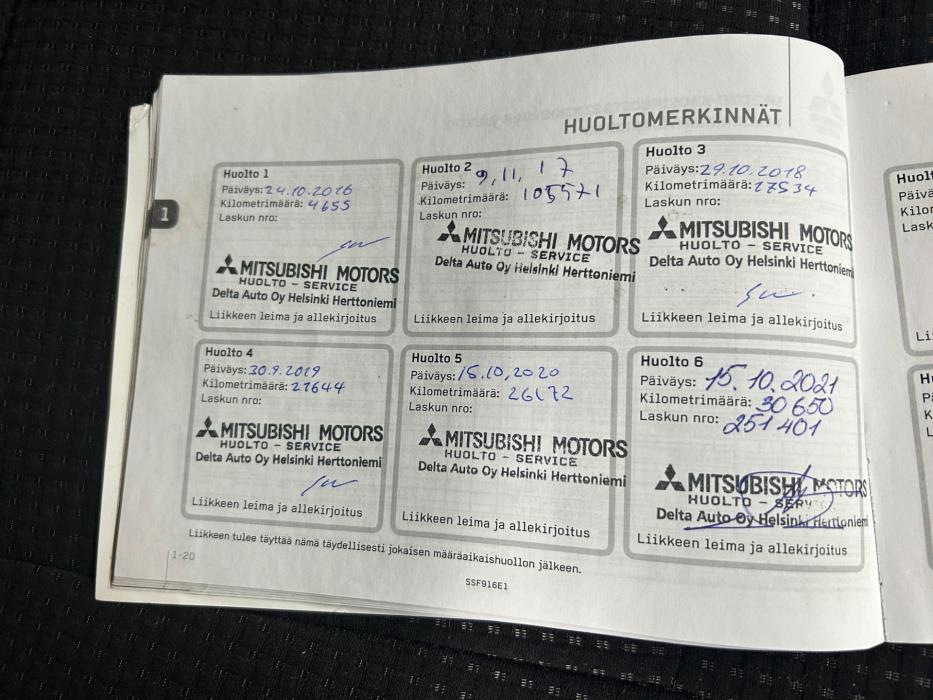 HUOLTOMERKINNÄT
1
Huolto 1
Päiväys: 24.10.2016
Kilometrimäärä: 4655
Laskun nro:
MITSUBISHI MOTORS
HUOLTO - SERVICE
Delta Auto Oy Helsinki Herttoniemi
Liikkeen leima ja allekirjoitus
Huolto 2
Päiväys: 9.11.17
Kilometrimäärä:
Laskun nro:
MITSUBISHI MOTORS
HUOLTO - SERVICE
Delta Auto Oy Helsinki Herttoniemi
Liikkeen leima ja allekirjoitus
Huolto 3
Päiväys: 29.10.2018
Kilometrimäärä: 17534
Laskun nro:
MITSUBISHI MOTORS
HUOLTO - SERVICE
Delta Auto Oy Helsinki Herttoniemi
Liikkeen leima ja allekirjoitus
Huolto 4
Päiväys: 30.9.2019
Kilometrimäärä: 21644
Laskun nro:
MITSUBISHI MOTORS
HUOLTO - SERVICE
Delta Auto Oy Helsinki Herttoniemi
Liikkeen leima ja allekirjoitus
Huolto 5
Päiväys: 15.10.2020
Kilometrimäärä: 26172
Laskun nro:
MITSUBISHI MOTORS
HUOLTO - SERVICE
Delta Auto Oy Helsinki Herttoniemi
Liikkeen leima ja allekirjoitus
Huolto 6
Päiväys: 15.10.2021
Kilometrimäärä: 30650
Laskun nro: 251401
MITSUBISHI MOTORS
HUOLTO - SERV
Delta Auto Oy Helsinki Herttoniem
Liikkeen leima ja allekirjoitus
Liikkeen tulee täyttää nämä täydellisesti jokaisen määräaikaishuollon jälkeen.
1-20
SSF916E1